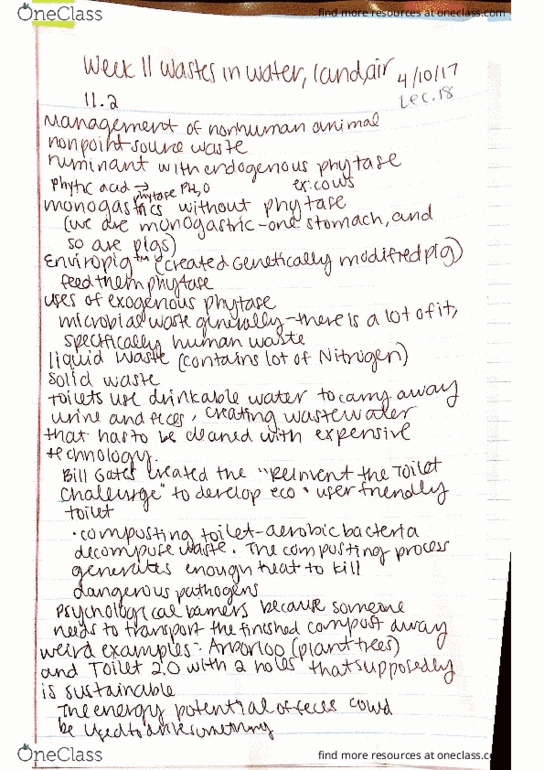 OneClass
find more resources at oneclass.com
Week 11 wastes in water, land, air 4/10/17
11.2 Lec. 18
management of nonhuman animal
nonpoint source waste
ruminant with endogenous phytase
Phytic acid → phytase PH2O ex: cows
monogastrics without phytase
(we are monogastric-one stomach, and
so are pigs)
Enviropig™ (created Genetically modified pig)
feed them phytase
uses of exogenous phytase
microbial waste generally-there is a lot of it,
specifically human waste
liquid waste (contains lot of Nitrogen)
solid waste
toilets use drinkable water to carry away
urine and feces, creating wastewater
that has to be cleaned with expensive
technology.
Bill Gates created the "Reinvent the Toilet
Challenge" to develop eco + user friendly
toilet
• composting toilet-aerobic bacteria
decompose waste. The composting process
generates enough heat to kill
dangerous pathogens
Psychological barriers because someone
needs to transport the finished compost away
weird examples: Arborloo (plant trees)
and Toilet 2.0 with 2 holes that supposedly
is sustainable
The energy potential of feces could
be used to drive something
OneClass
find more resources at oneclass.com